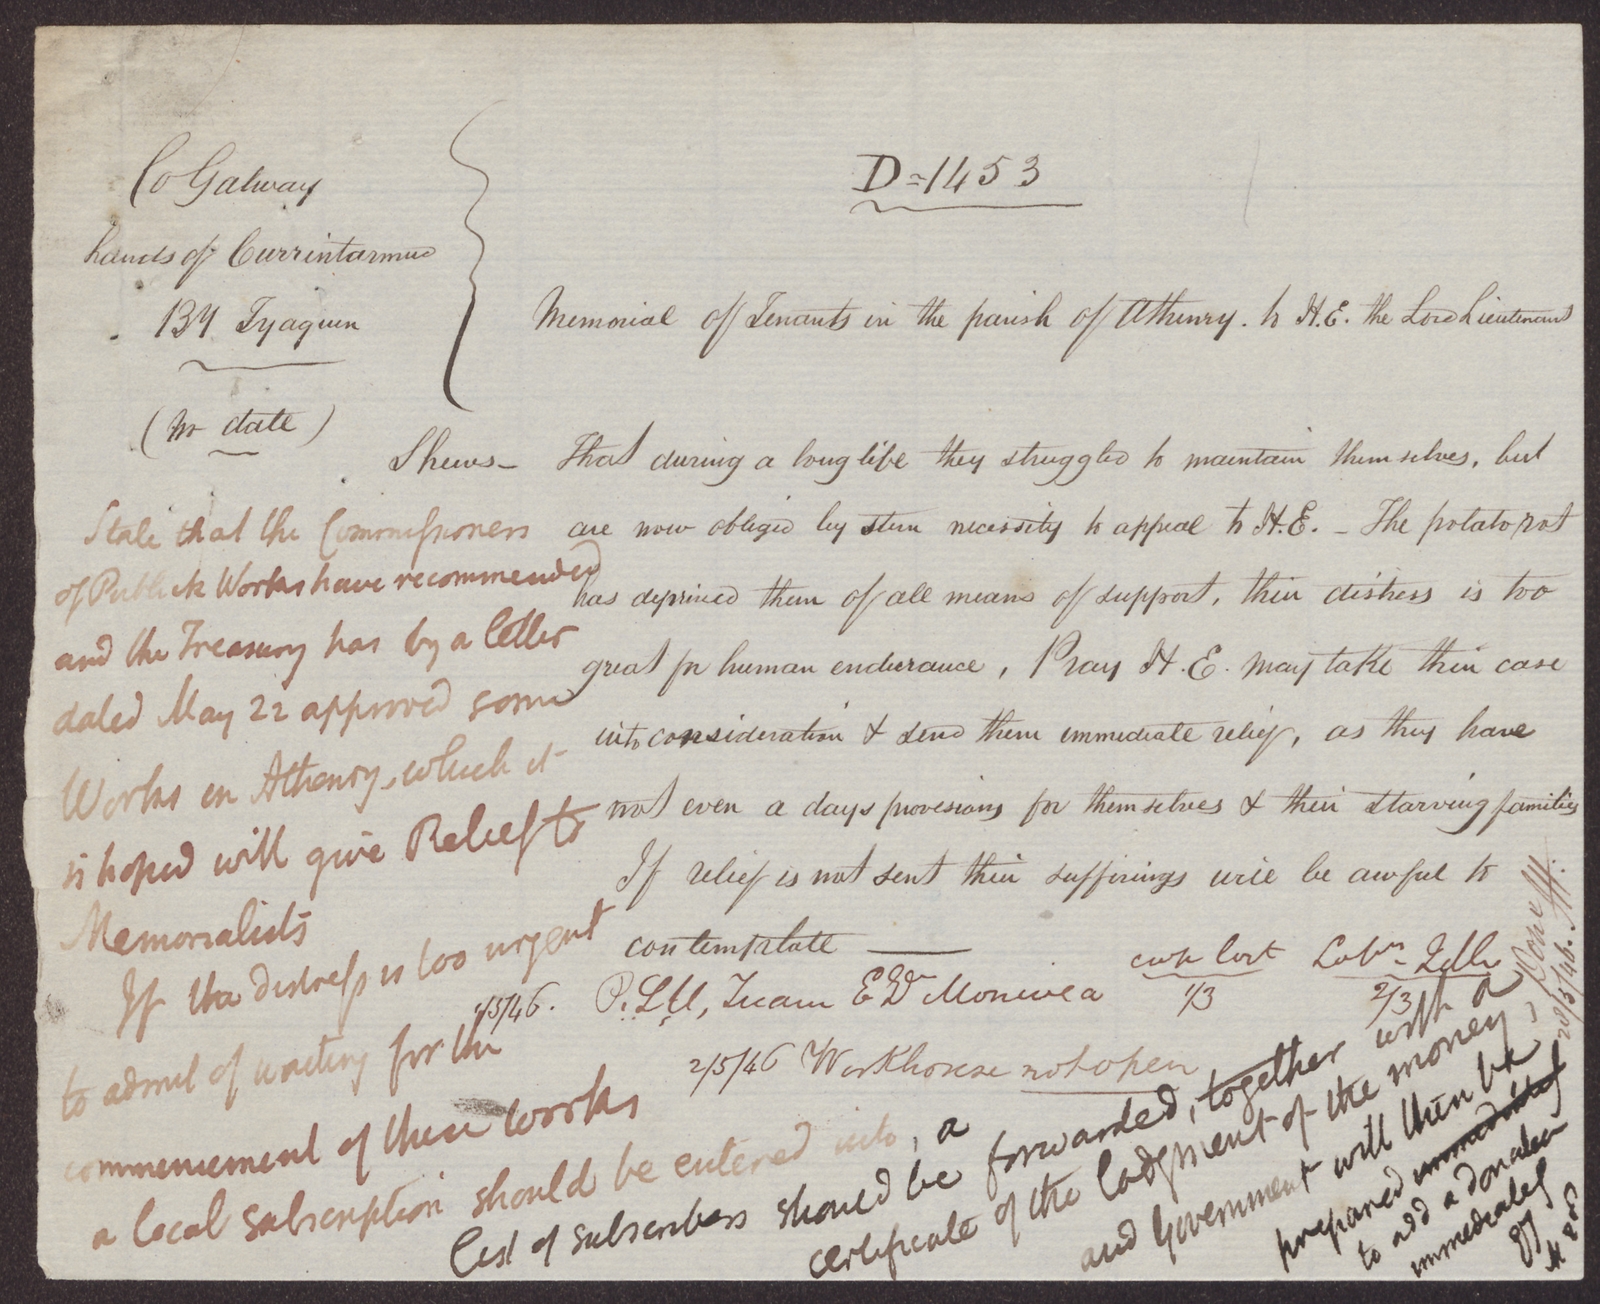 Co Galway
Lands of Currintarmud
134 Tyaquin
(no date)
D=1453
Memorial of Tenants in the parish of Athenry. to H.E. the Lord Lieutenant
Shews- That during a long life they struggled to maintain themselves, but
are now obliged by stern necessity to appeal to H.E. - The potato rot
has deprived them of all means of support, their distress is too
great for human endurance, Pray H.E. may take their case
into consideration & send them immediate relief, as they have
not even a days provisions for themselves & their starving families
If relief is not sent their sufferings will be awful to
contemplate
1/5/46. P.L.U, Tuam E Dn Monivea
cwn Cost 1/3
Labr 2/3
2/5/46 Workhouse not open
State that the Commissioners
of Publick Works have recommended
and the Treasury has by a letter
dated May 22 approved some
Works in Athenry, which it
is hoped will give Relief to
Memorialists
If the distress is too urgent
to admit of waiting for the
commencement of these works
a local subscription should be entered into, a
list of subscribers should be forwarded, together with a
certificate of the lodgment of the money,
and Government will then be
prepared immediately
to add a donation
immediately
28/5/46.